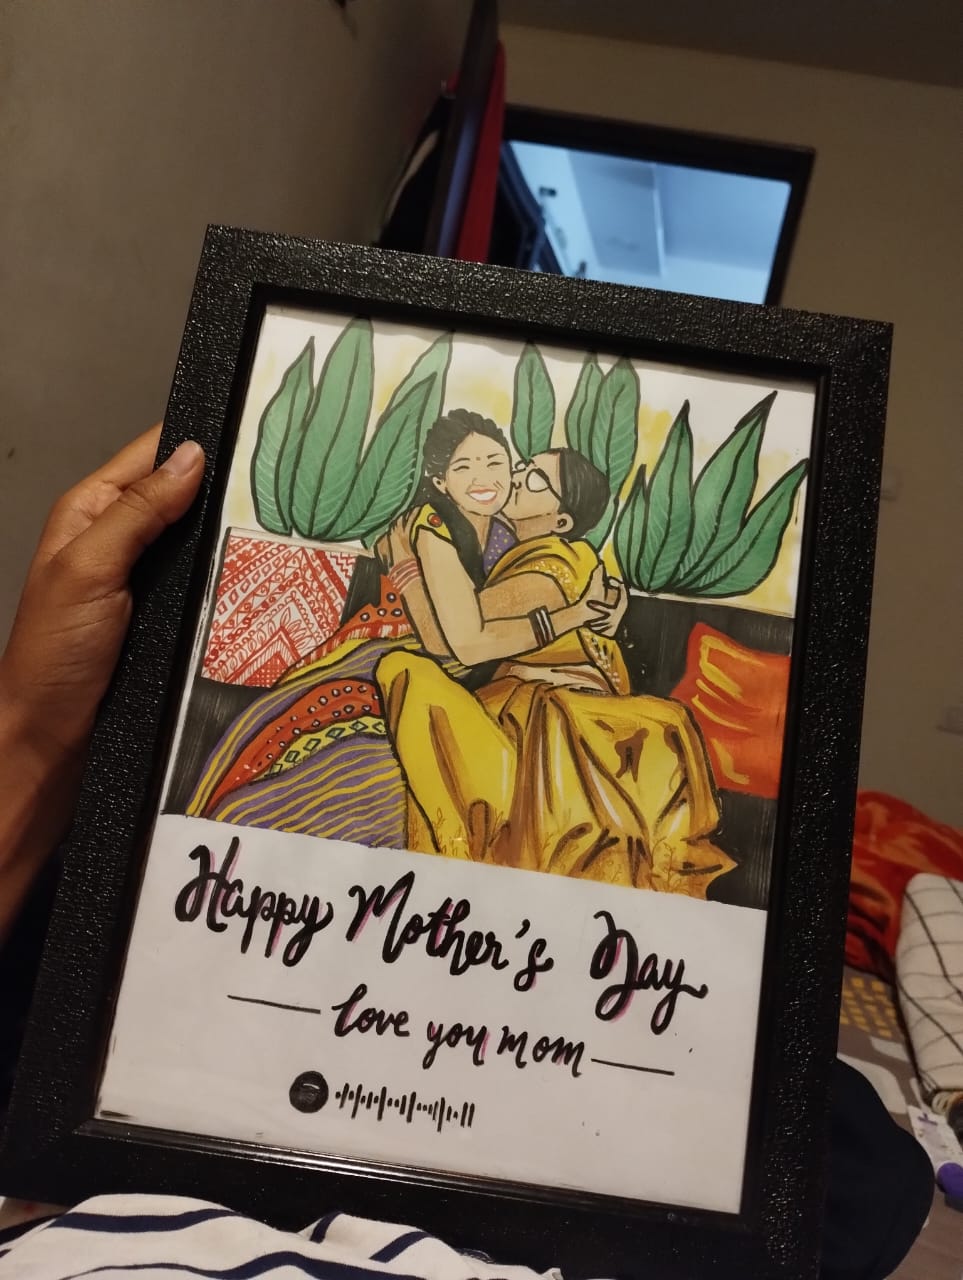 Happy Mother's Day
love you mom